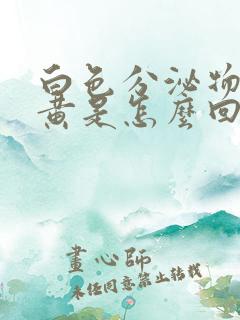 白色分泌物
黄是怎麼回
畫心師
未经同意禁止转载